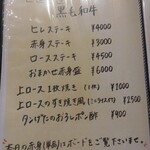 黒毛和牛
ヒレステーキ ¥4000
赤身ステーキ ¥3000
ロースステーキ
おまかせ赤身盛 ¥6000
上ロース1枚焼き (1枚) ¥1000
上ロースのすき焼き風 ¥2500
タンげたのおろしポン酢 ¥900
本日の赤身(単品)はボードをご覧下さいませ。